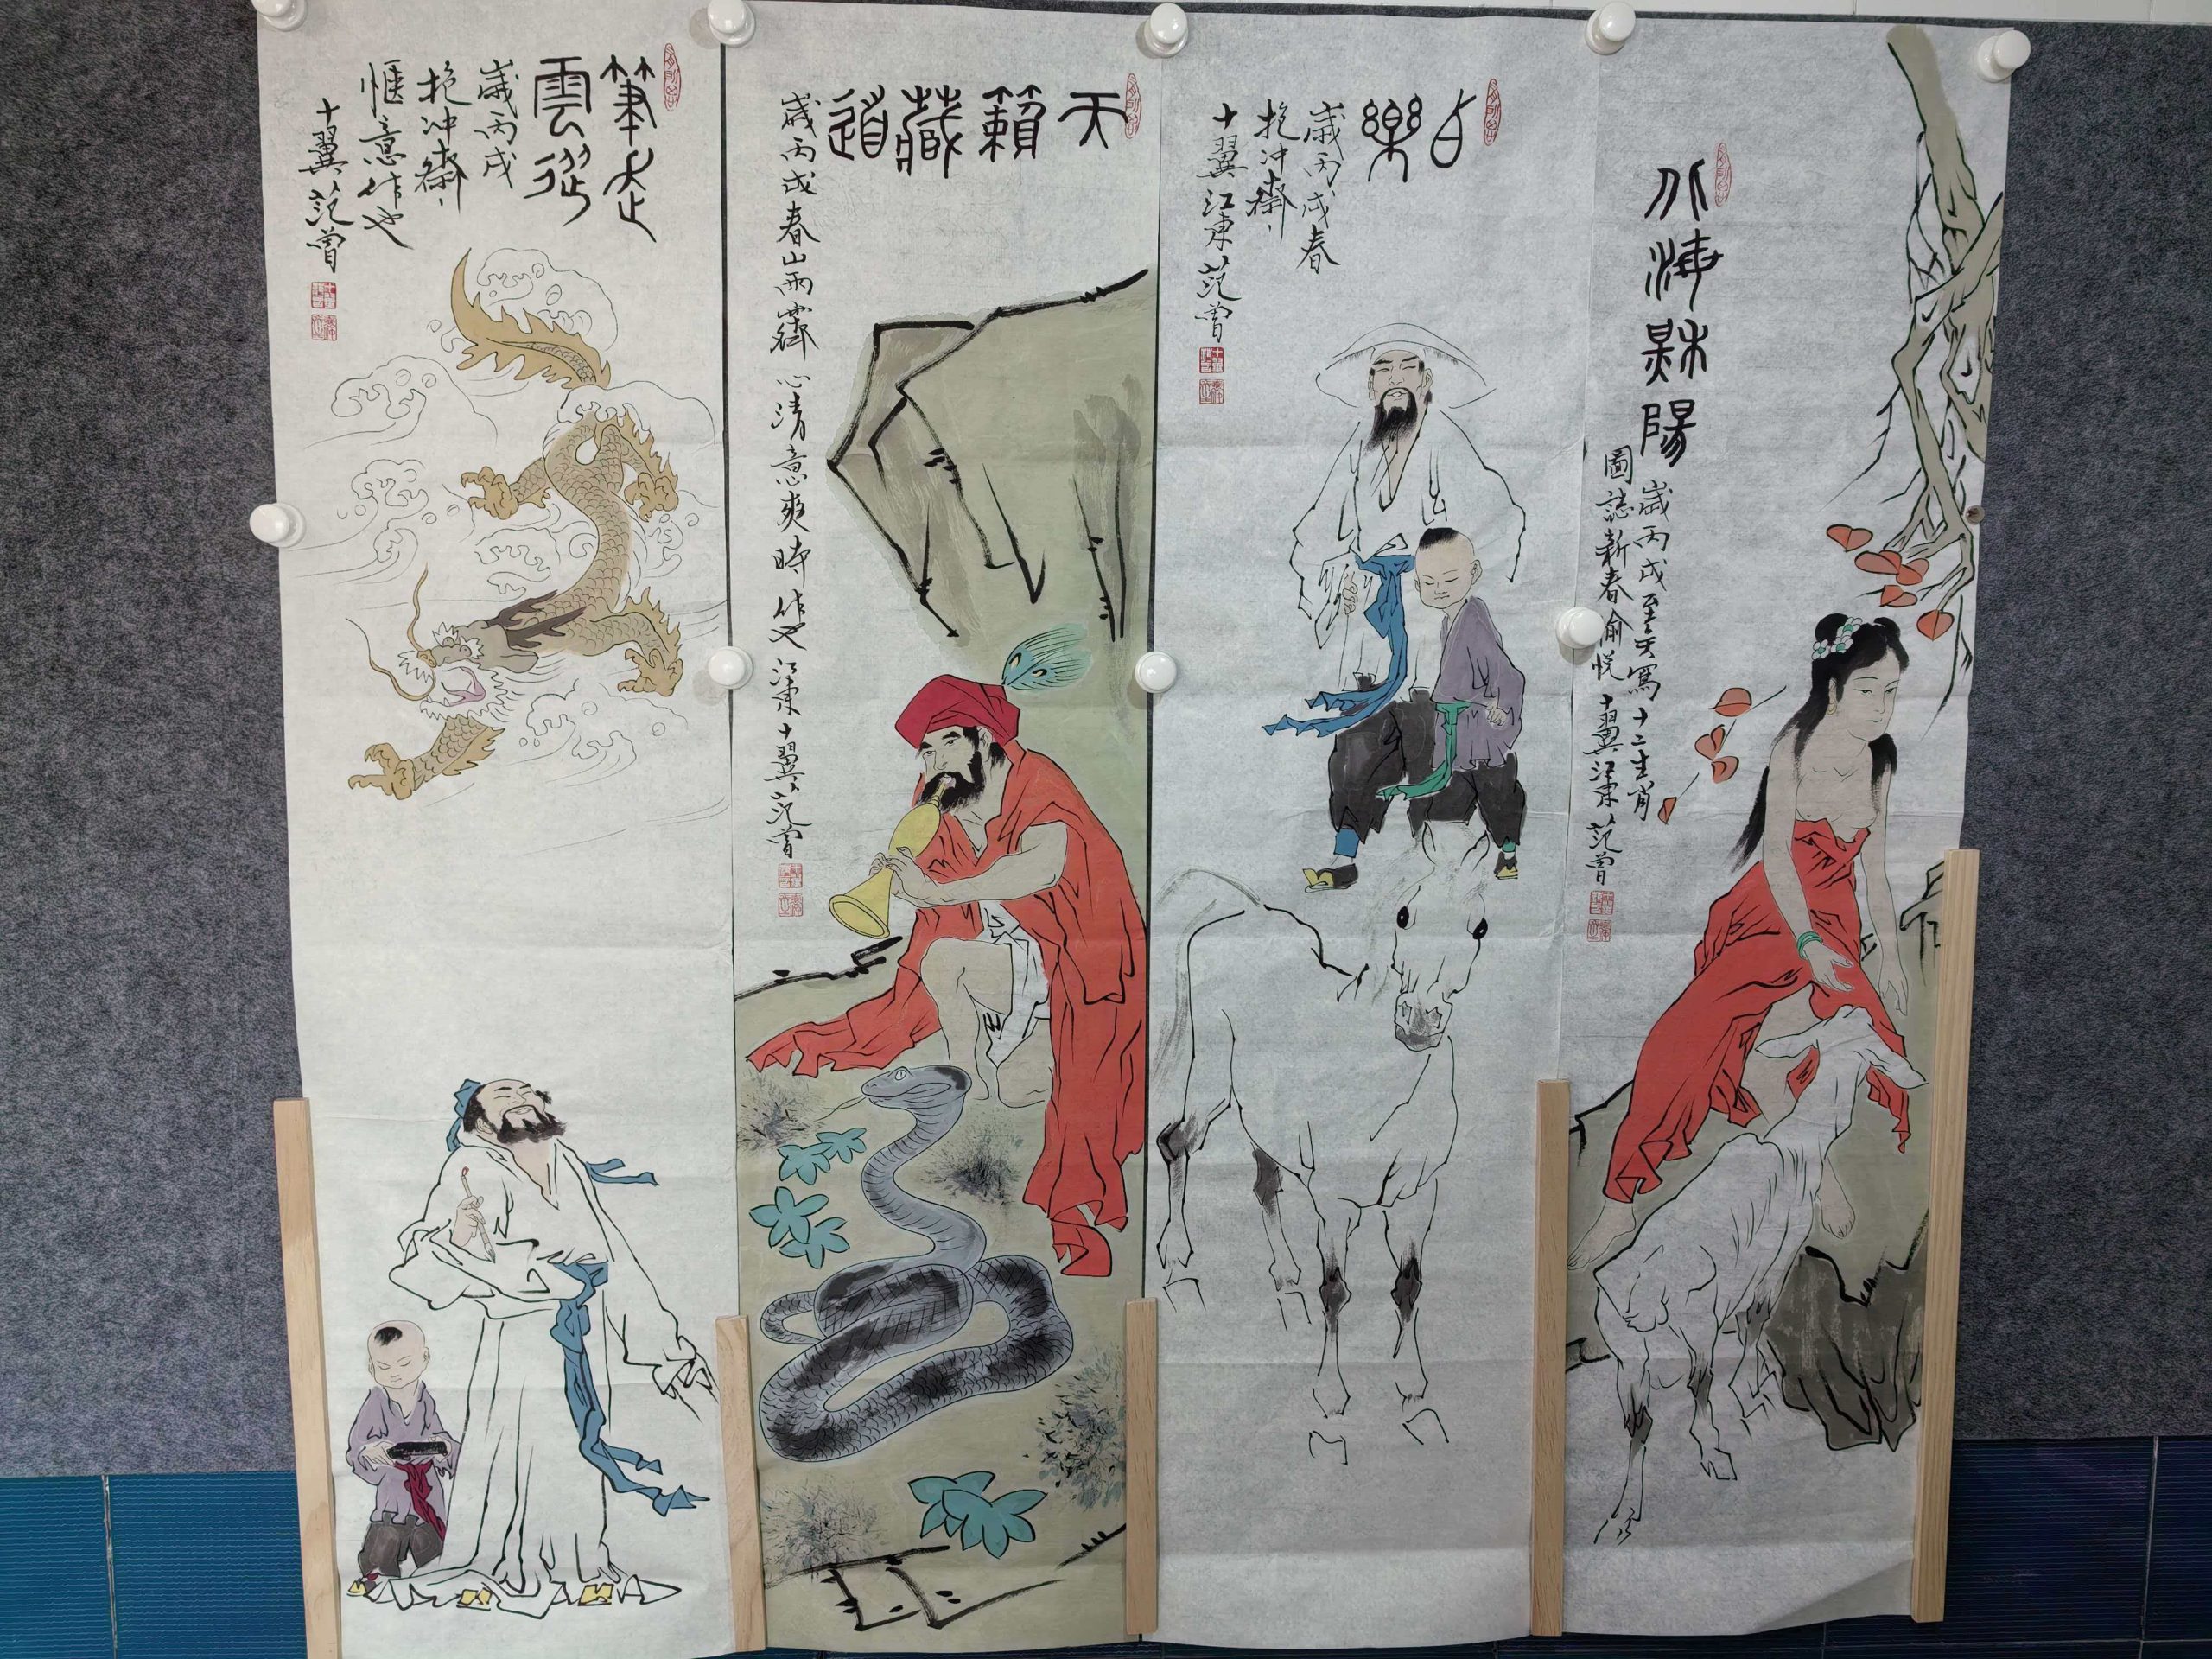 筆走
雲從
歲丙戌
抱冲齋
愜意作也
十翼范曾
天籟藏道
歲丙戌春山雨霽心清意爽時作也江東十翼范曾
樂
歲丙戌春
抱冲齋
十翼江東范曾
陽
歲丙戌
寫十二生肖
圖誌新春愉悅十翼江東范曾